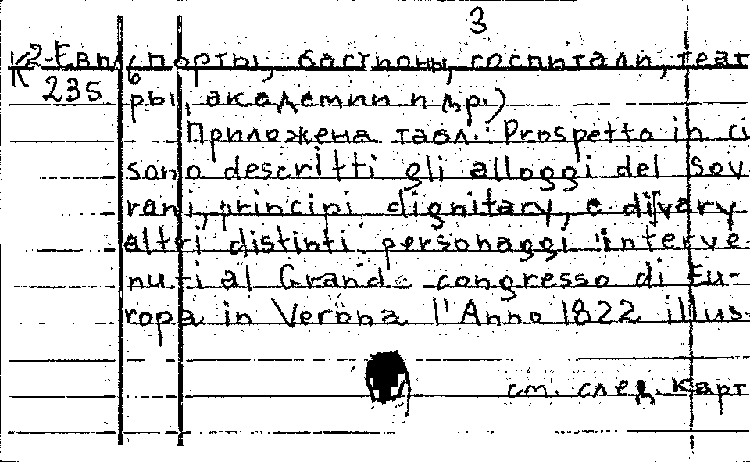 3
K2-Евп спорты, бастионы, госпитали, теат
235 ры, академии и др.)
Приложена табл. Prospetto in cu
sono descritti gli alloggi del Sov
rani, principi dignitary, e di vary
altri distinti personaggi interve-
nuti al Grande congresso di Eu-
ropa in Verona l'Anno 1822 illus-
см. след. карт